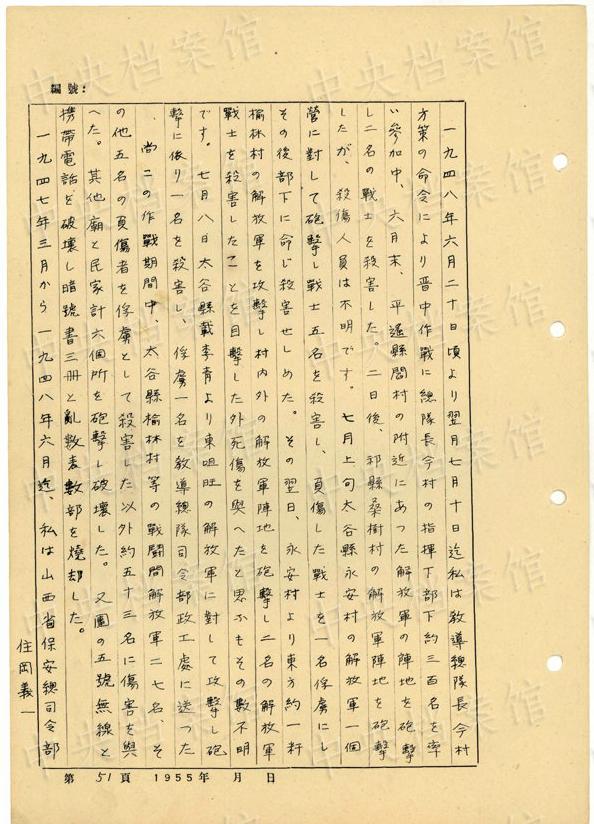 編號：
一九四八年六月二十日頃より翌月七月十日迄私は教導總隊長今村
方策の命令により晋中作戰に總隊長今村の指揮下部下約三百名を率
い參加中、六月末、平遙縣閻村の附近にあつた解放軍の陣地を砲擊
し二名の戰士を殺害した。二日後、祁縣桑樹村の解放軍陣地を砲擊
したが、殺傷人員は不明です。七月上旬太谷縣永安村の解放軍一個
營に對して砲擊し戰士五名を殺害し、負傷した戰士を一名俘虜にし
その後部下に命じ殺害せしめた。その翌日、永安村より東方約一粁
榆林村の解放軍を攻擊し村內外の解放軍陣地を砲擊し二名の解放軍
戰士を殺害したことを目擊した外死傷を與へたと思ふもその數不明
です。七月八日太谷縣戴李青より東咀旺の解放軍に對して攻擊し砲
擊に依り一名を殺害し、俘虜一名を敎導總隊司令部政工處に送つた
尚この作戰期間中、太谷縣榆林村等の戰鬪間解放軍二七名、そ
の他五名の負傷者を俘虜として殺害した以外約五十三名に傷害を與
へた。其他廟と民家計六個所を砲擊し破壞した。又團の五號無線と
携帶電話を破壞し暗號書三册と亂數表數部を燒却した。
一九四七年三月から一九四八年六月迄、私は山西省保安總司令部
住岡義一
第 51 頁 1955年 月 日
中央档案馆